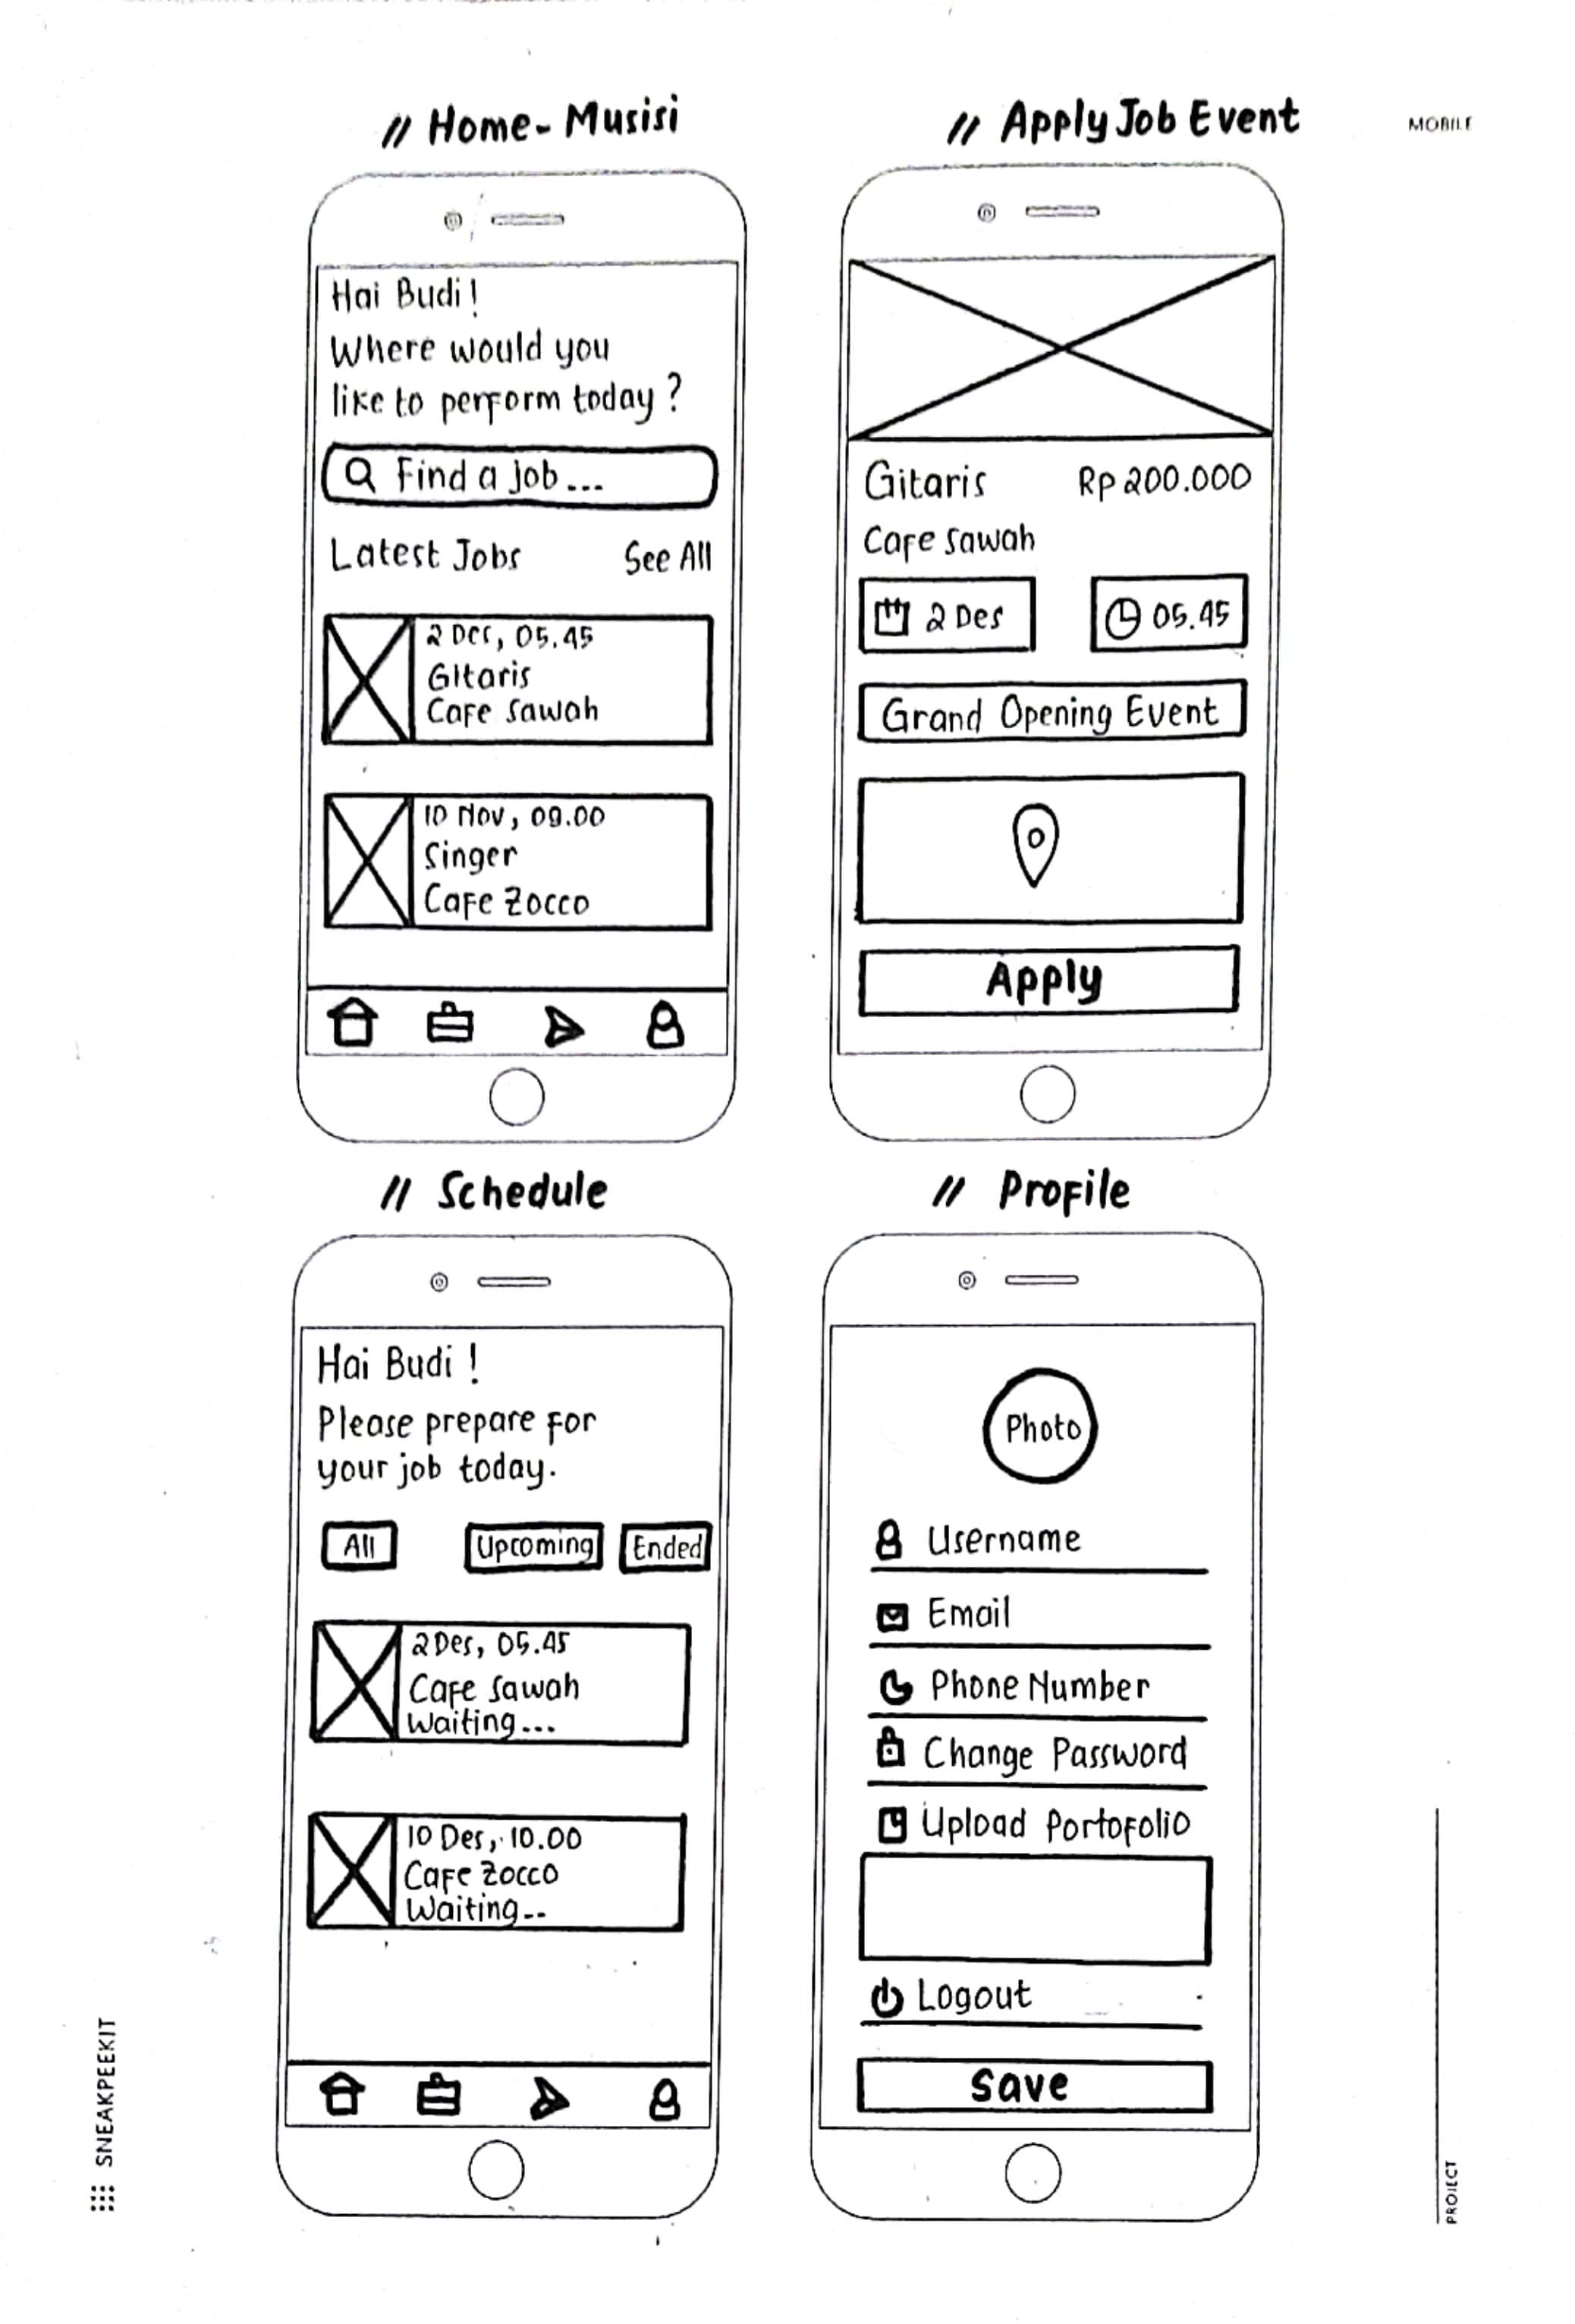 // Home- Musisi
// Apply Job Event
MOBILE
Hai Budi!
Where would you
like to perform today?
Find a job...
Latest Jobs
See All
2 Des, 05.45
Gitaris
Cafe Sawah
10 Nov, 09.00
Singer
Cafe Zocco
Gitaris
Rp 200.000
Cafe Sawah
2 Des
05.45
Grand Opening Event
Apply
// Schedule
// Profile
Hai Budi !
Please prepare for
your job today.
All
Upcoming
Ended
2 Des, 05.45
Cafe Sawah
Waiting...
10 Des, 10.00
Cafe Zocco
Waiting--
Photo
Username
Email
Phone Number
Change Password
Upload Portofolio
Logout
Save
SNEAKPEEKIT
PROJECT